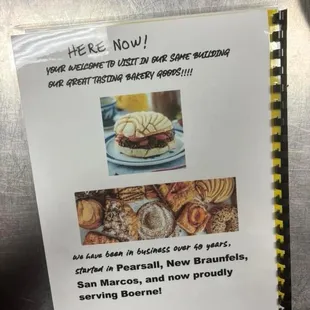 HERE NOW!
YOUR WELCOME TO VISIT IN OUR SAME BUILDING
OUR GREAT TASTING BAKERY GOODS!!!!
We have been in business over 40 years,
started in Pearsall, New Braunfels,
San Marcos, and now proudly
serving Boerne!